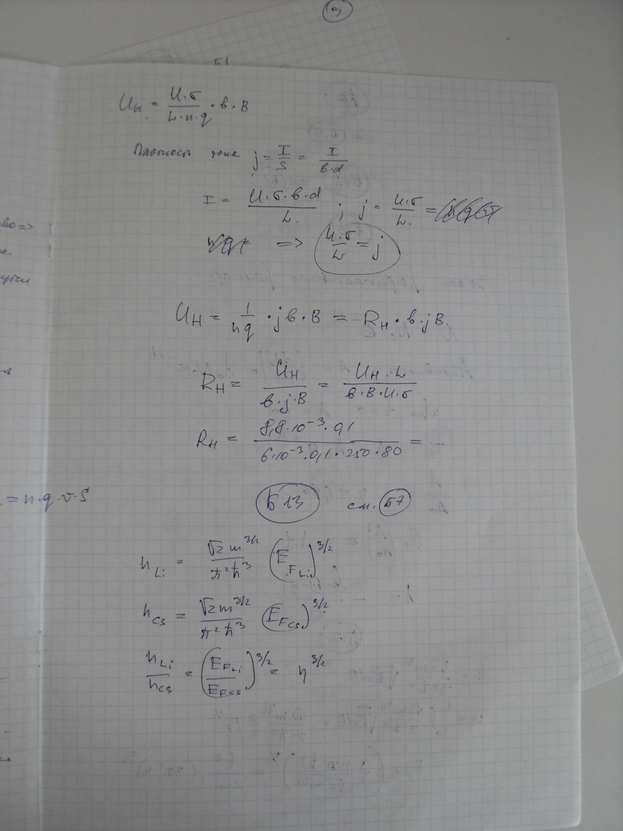 U_H = U·σ / L·n·q · b · B
Плотность тока j = I/S = I/b·d
I = U·σ·b·d / L ; j = U·σ / L =
=> U·σ / L = j
U_H = 1/nq · j b · B = R_H · b · j B.
R_H = U_H / b·j·B = U_H · L / b·B·U·σ
R_H = 8,8·10⁻³·0,1 / 6·10⁻³·0,1·250·80 =
Б 13 см. Б7
= n·q·v·S
n_Li = √2 m^3/2 / π²ħ³ (E_F Li)^3/2
n_Cs = √2 m^3/2 / π²ħ³ (E_F Cs)^3/2
n_Li / n_Cs = (E_F Li / E_F Cs)^3/2 = η^3/2